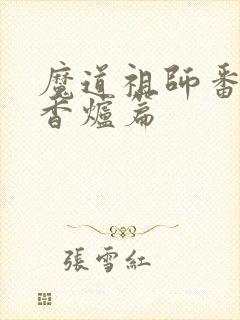 魔道祖師番
香爐篇
張雪紅